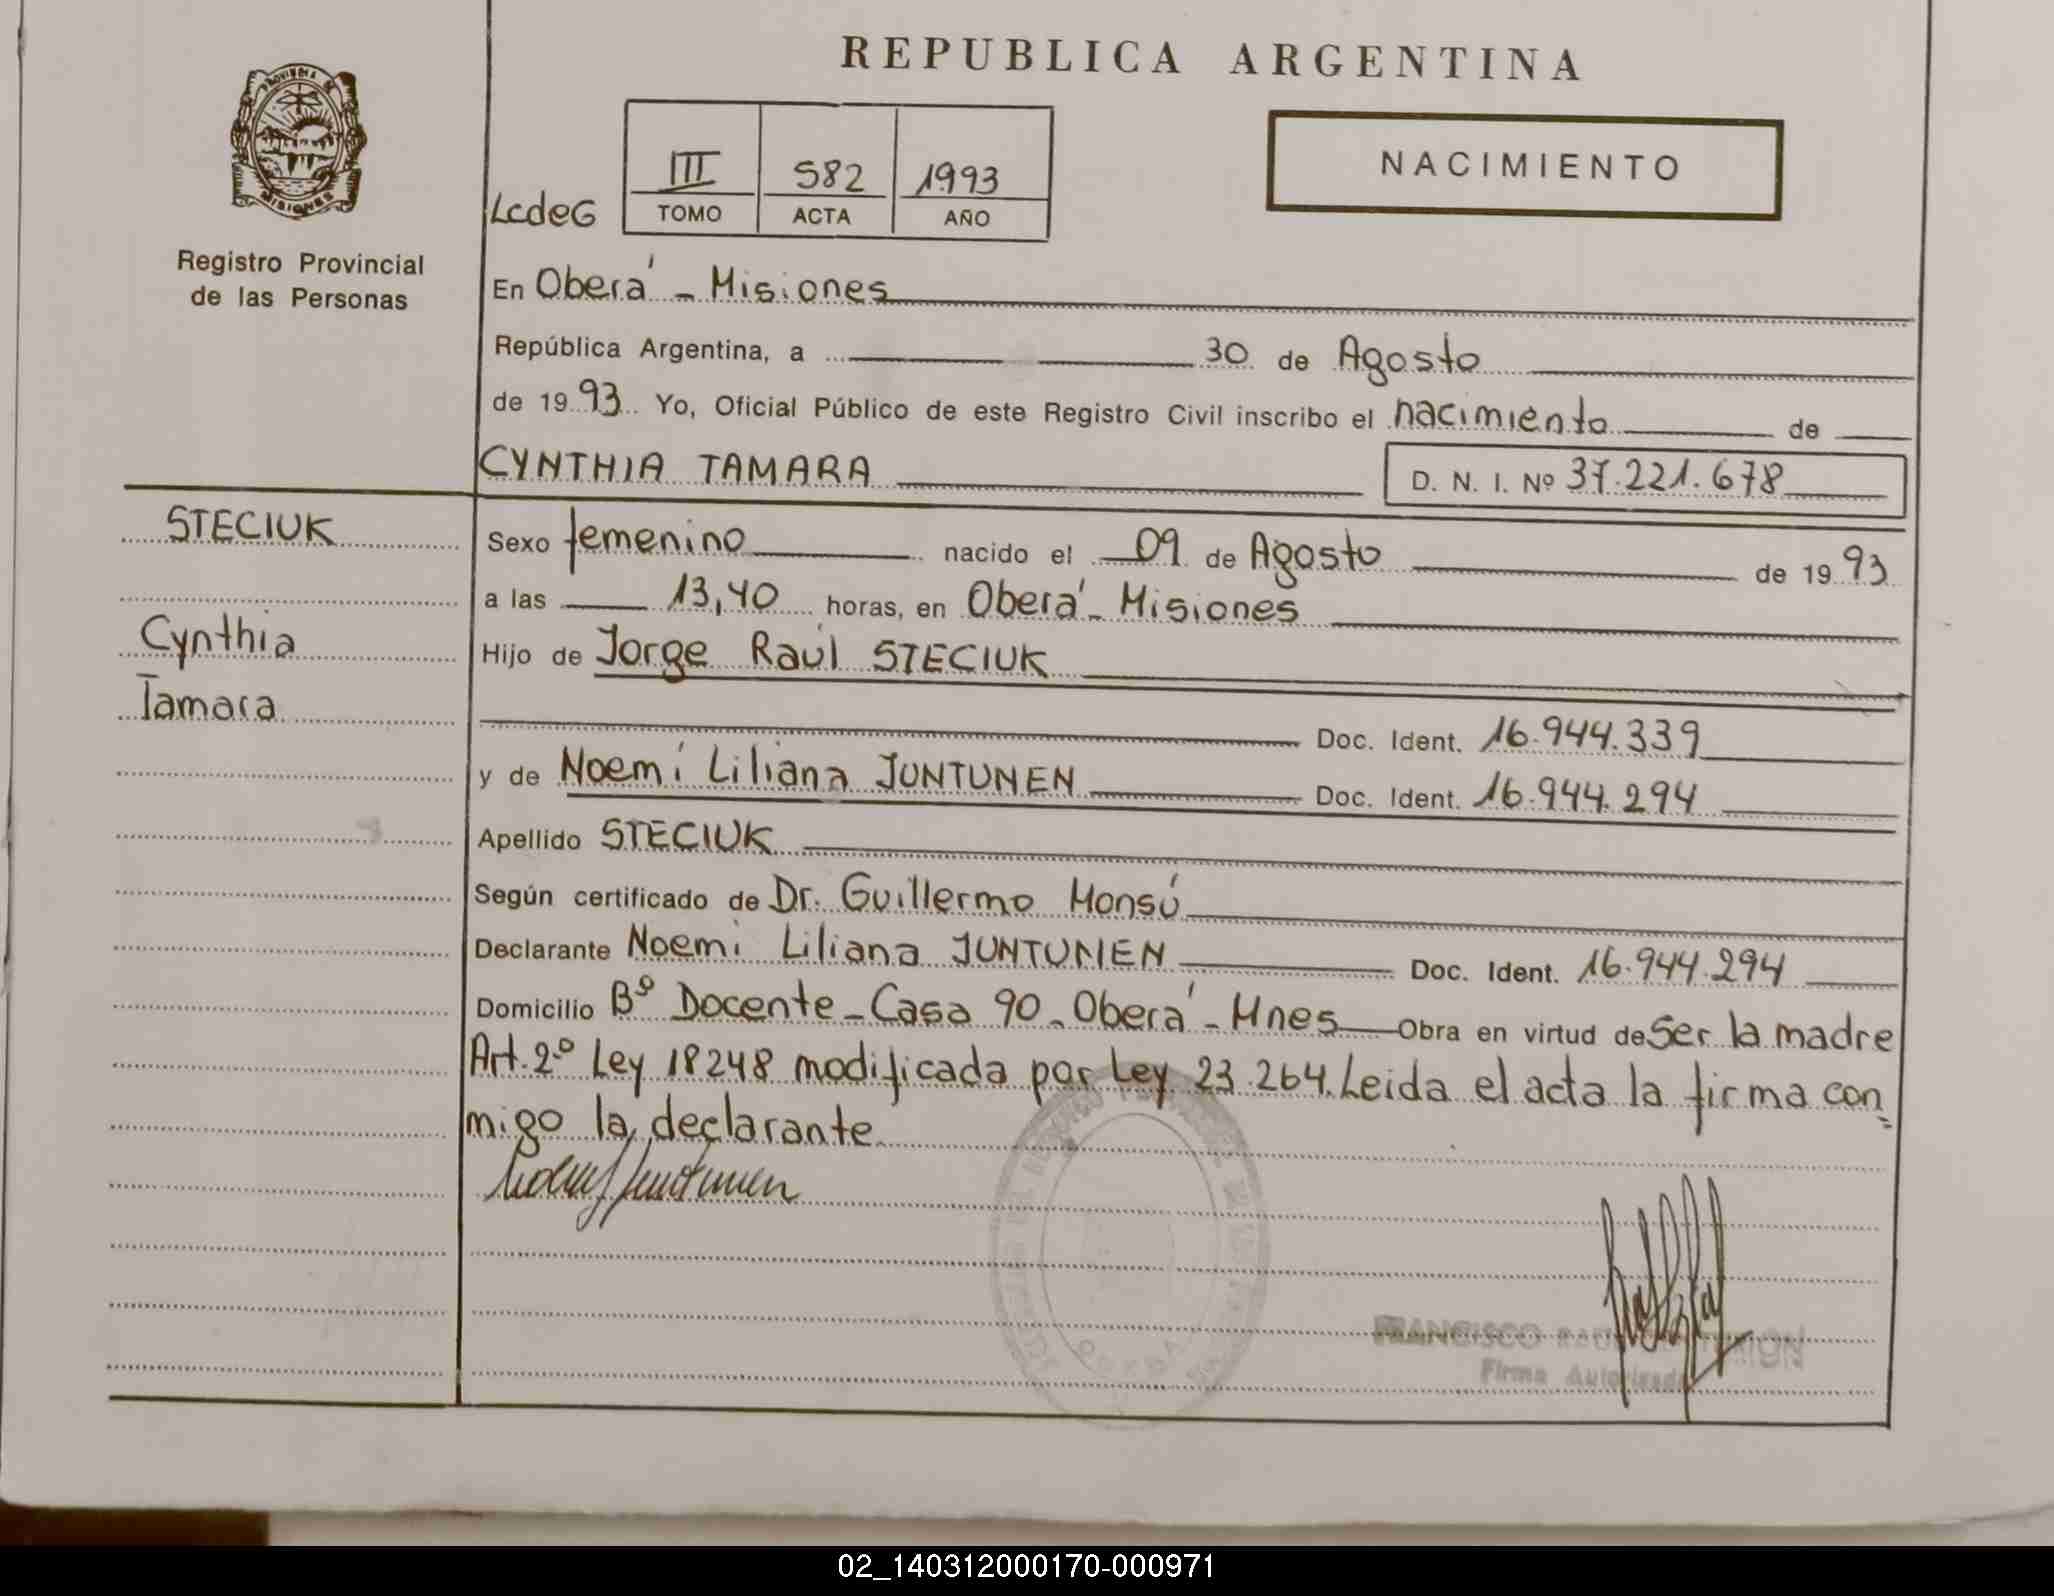 REPUBLICA ARGENTINA
PROVINCIA DE
MISIONES
Registro Provincial
de las Personas
LcdeG
III 582 1993
TOMO ACTA AÑO
NACIMIENTO
En Oberá - Misiones
República Argentina, a 30 de Agosto
de 1993 Yo, Oficial Público de este Registro Civil inscribo el nacimiento de
CYNTHIA TAMARA D. N. I. Nº 37.221.678
STECIUK
Cynthia
Tamara
Sexo femenino nacido el 09 de Agosto de 1993
a las 13,40 horas, en Oberá - Misiones
Hijo de Jorge Raúl STECIUK
Doc. Ident. 16.944.339
y de Noemí Liliana JUNTUNEN Doc. Ident. 16.944.294
Apellido STECIUK
Según certificado de Dr. Guillermo Monsú
Declarante Noemi Liliana JUNTUNEN Doc. Ident. 16.944.294
Domicilio Bº Docente - Casa 90 - Oberá - Mnes Obra en virtud de Ser la madre
Art. 2º Ley 18248 modificada por Ley 23.264. Leida el acta la firma con=
migo la declarante
FRANCISCO
Firma Autorizada
02_140312000170-000971